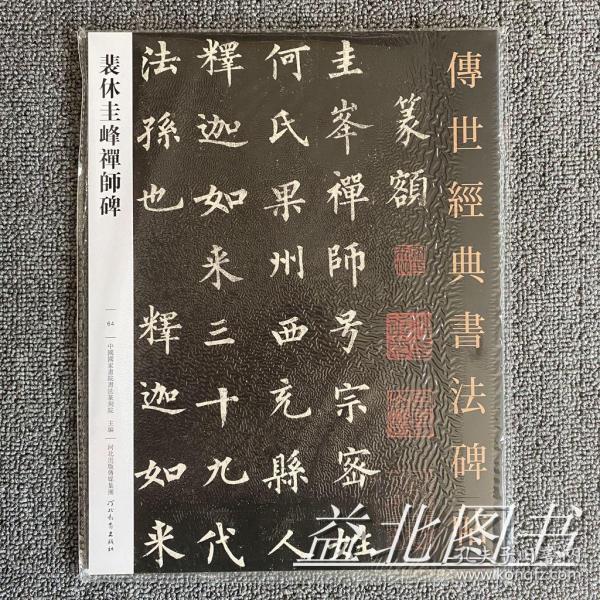 傳世經典書法碑
篆額
圭峯禪師号宗密姓
何氏果州西充縣人
釋迦如来三十九代
法孫也 釋迦如来
裴休圭峰禪師碑
64
中國國家畫院書法篆刻院 主編
河北出版傳媒集團
河北教育出版社
益北图书